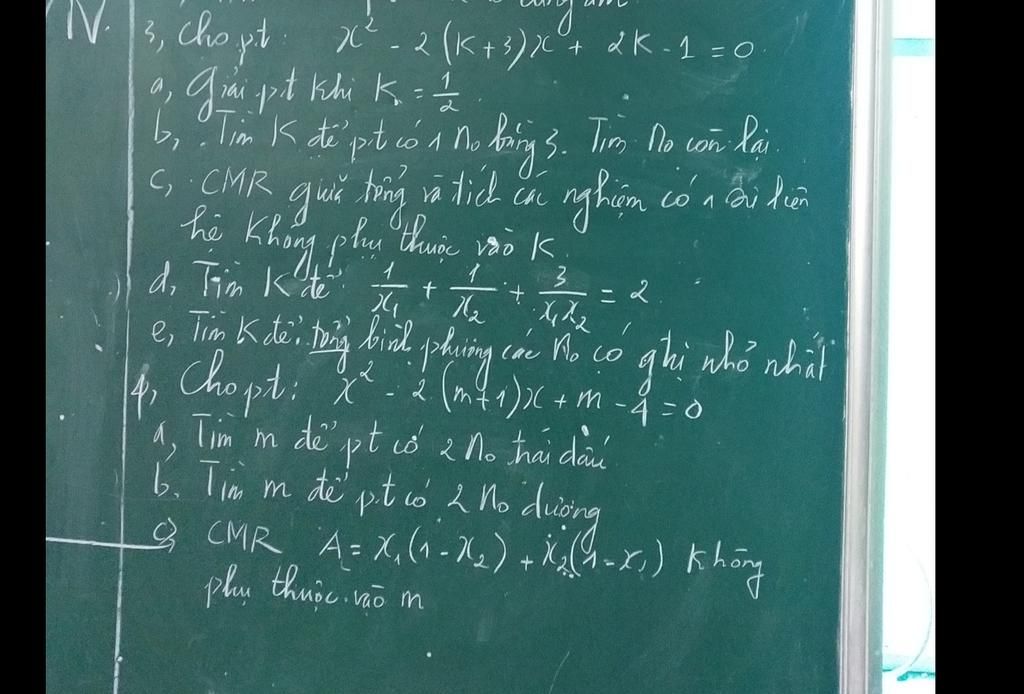 IV.
3, Cho pt: x² - 2(K+3)x + 2K - 1 = 0.
a, Giải pt khi K = 1/2.
b, Tìm K để pt có 1 No bằng 3. Tìm No còn lại.
c, CMR giữa tổng và tích các nghiệm có 1 sự liên
hệ không phụ thuộc vào K.
d, Tìm K để 1/x₁ + 1/x₂ + 3/x₁x₂ = 2.
e, Tìm K để tổng bình phương các No có gtrị nhỏ nhất
4, Cho pt: x² - 2(m+1)x + m - 4 = 0
a, Tìm m để pt có 2 No trái dấu
b. Tìm m để pt có 2 No dương
c, CMR A = x₁(1 - x₂) + x₂(1 - x₁) không
phụ thuộc vào m